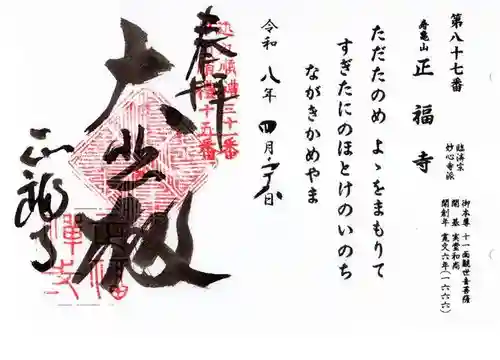 第八十七番
寿亀山
正福寺
臨済宗
妙心寺派
御本尊 十一面観世音菩薩
開基 実堂和尚
開創年 寛文六年(一六六六)
ただたのめ よゝをまもりて
すぎたにのほとけのいのち
ながきかめやま
令和八年四月 日
奉拝
大悲殿
正福寺